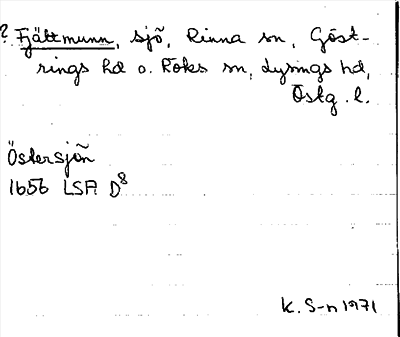 ? Fjättmunn, sjö, Rinna sn, Göst-
rings hd o. Röks sn, Lysings hd,
Östg. l.
Östersjön
1656 LSA D8
K. S-n 1971